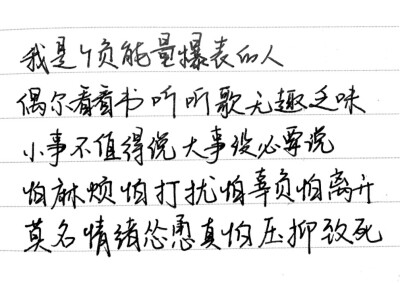 我是个负能量爆表的人
偶尔看看书 听听歌 无趣乏味
小事不值得说 大事没必要说
怕麻烦怕打扰怕辜负怕离开
莫名情绪怂恿真怕压抑致死